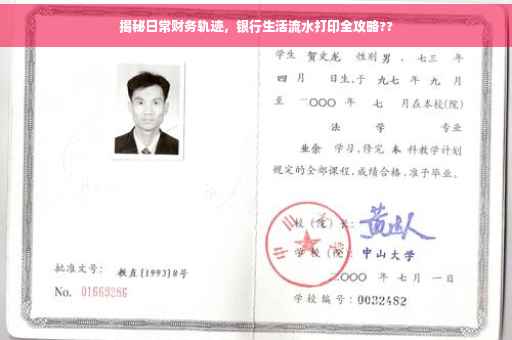 揭秘日常财务轨迹，银行生活流水打印全攻略??
学生 贺文龙 性别 男 ，七三 年
四 月 日生,于 九七 年 九 月
至 二〇〇〇 年 七 月在本校(院)
法 学 专业
业余 学习,修完 本 科教学计划
规定的全部课程,成绩合格,准予毕业。
校（院）长：
学 校（院）：中山大学
二〇〇〇 年 七 月 一 日
学校编号：0032482
批准文号： 教直[1993]8号
No. 01663286